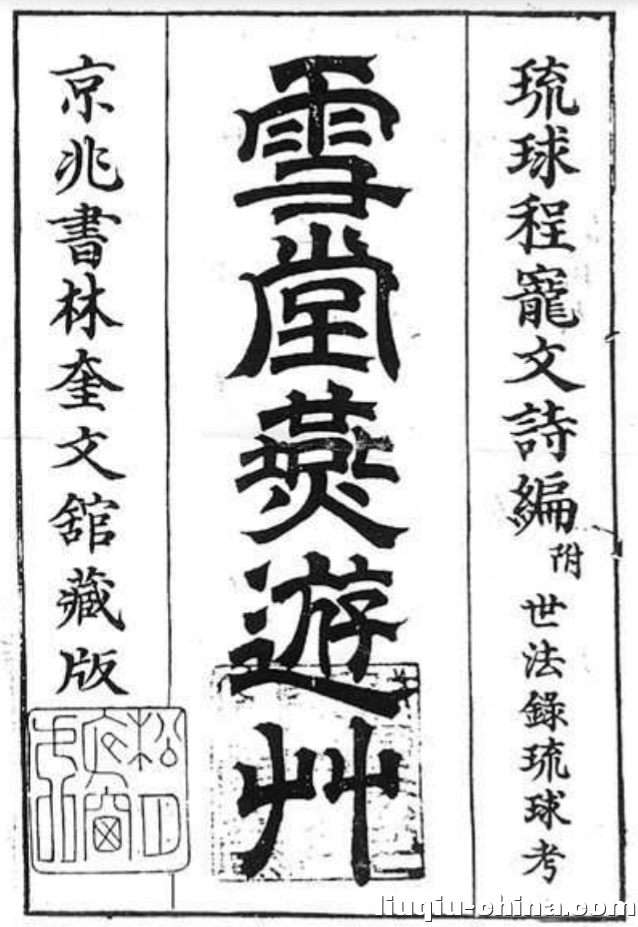 琉球程寵文詩編 附 世法錄琉球考
雪堂燕遊艸
京兆書林奎文舘藏版
liuqiu-china.com